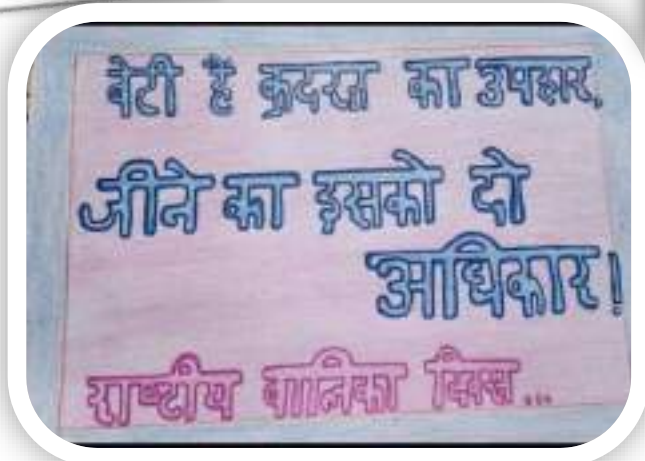 बेटी है कुदरत का उपहार,
जीने का इसको दो
अधिकार!
राष्ट्रीय बालिका दिवस...